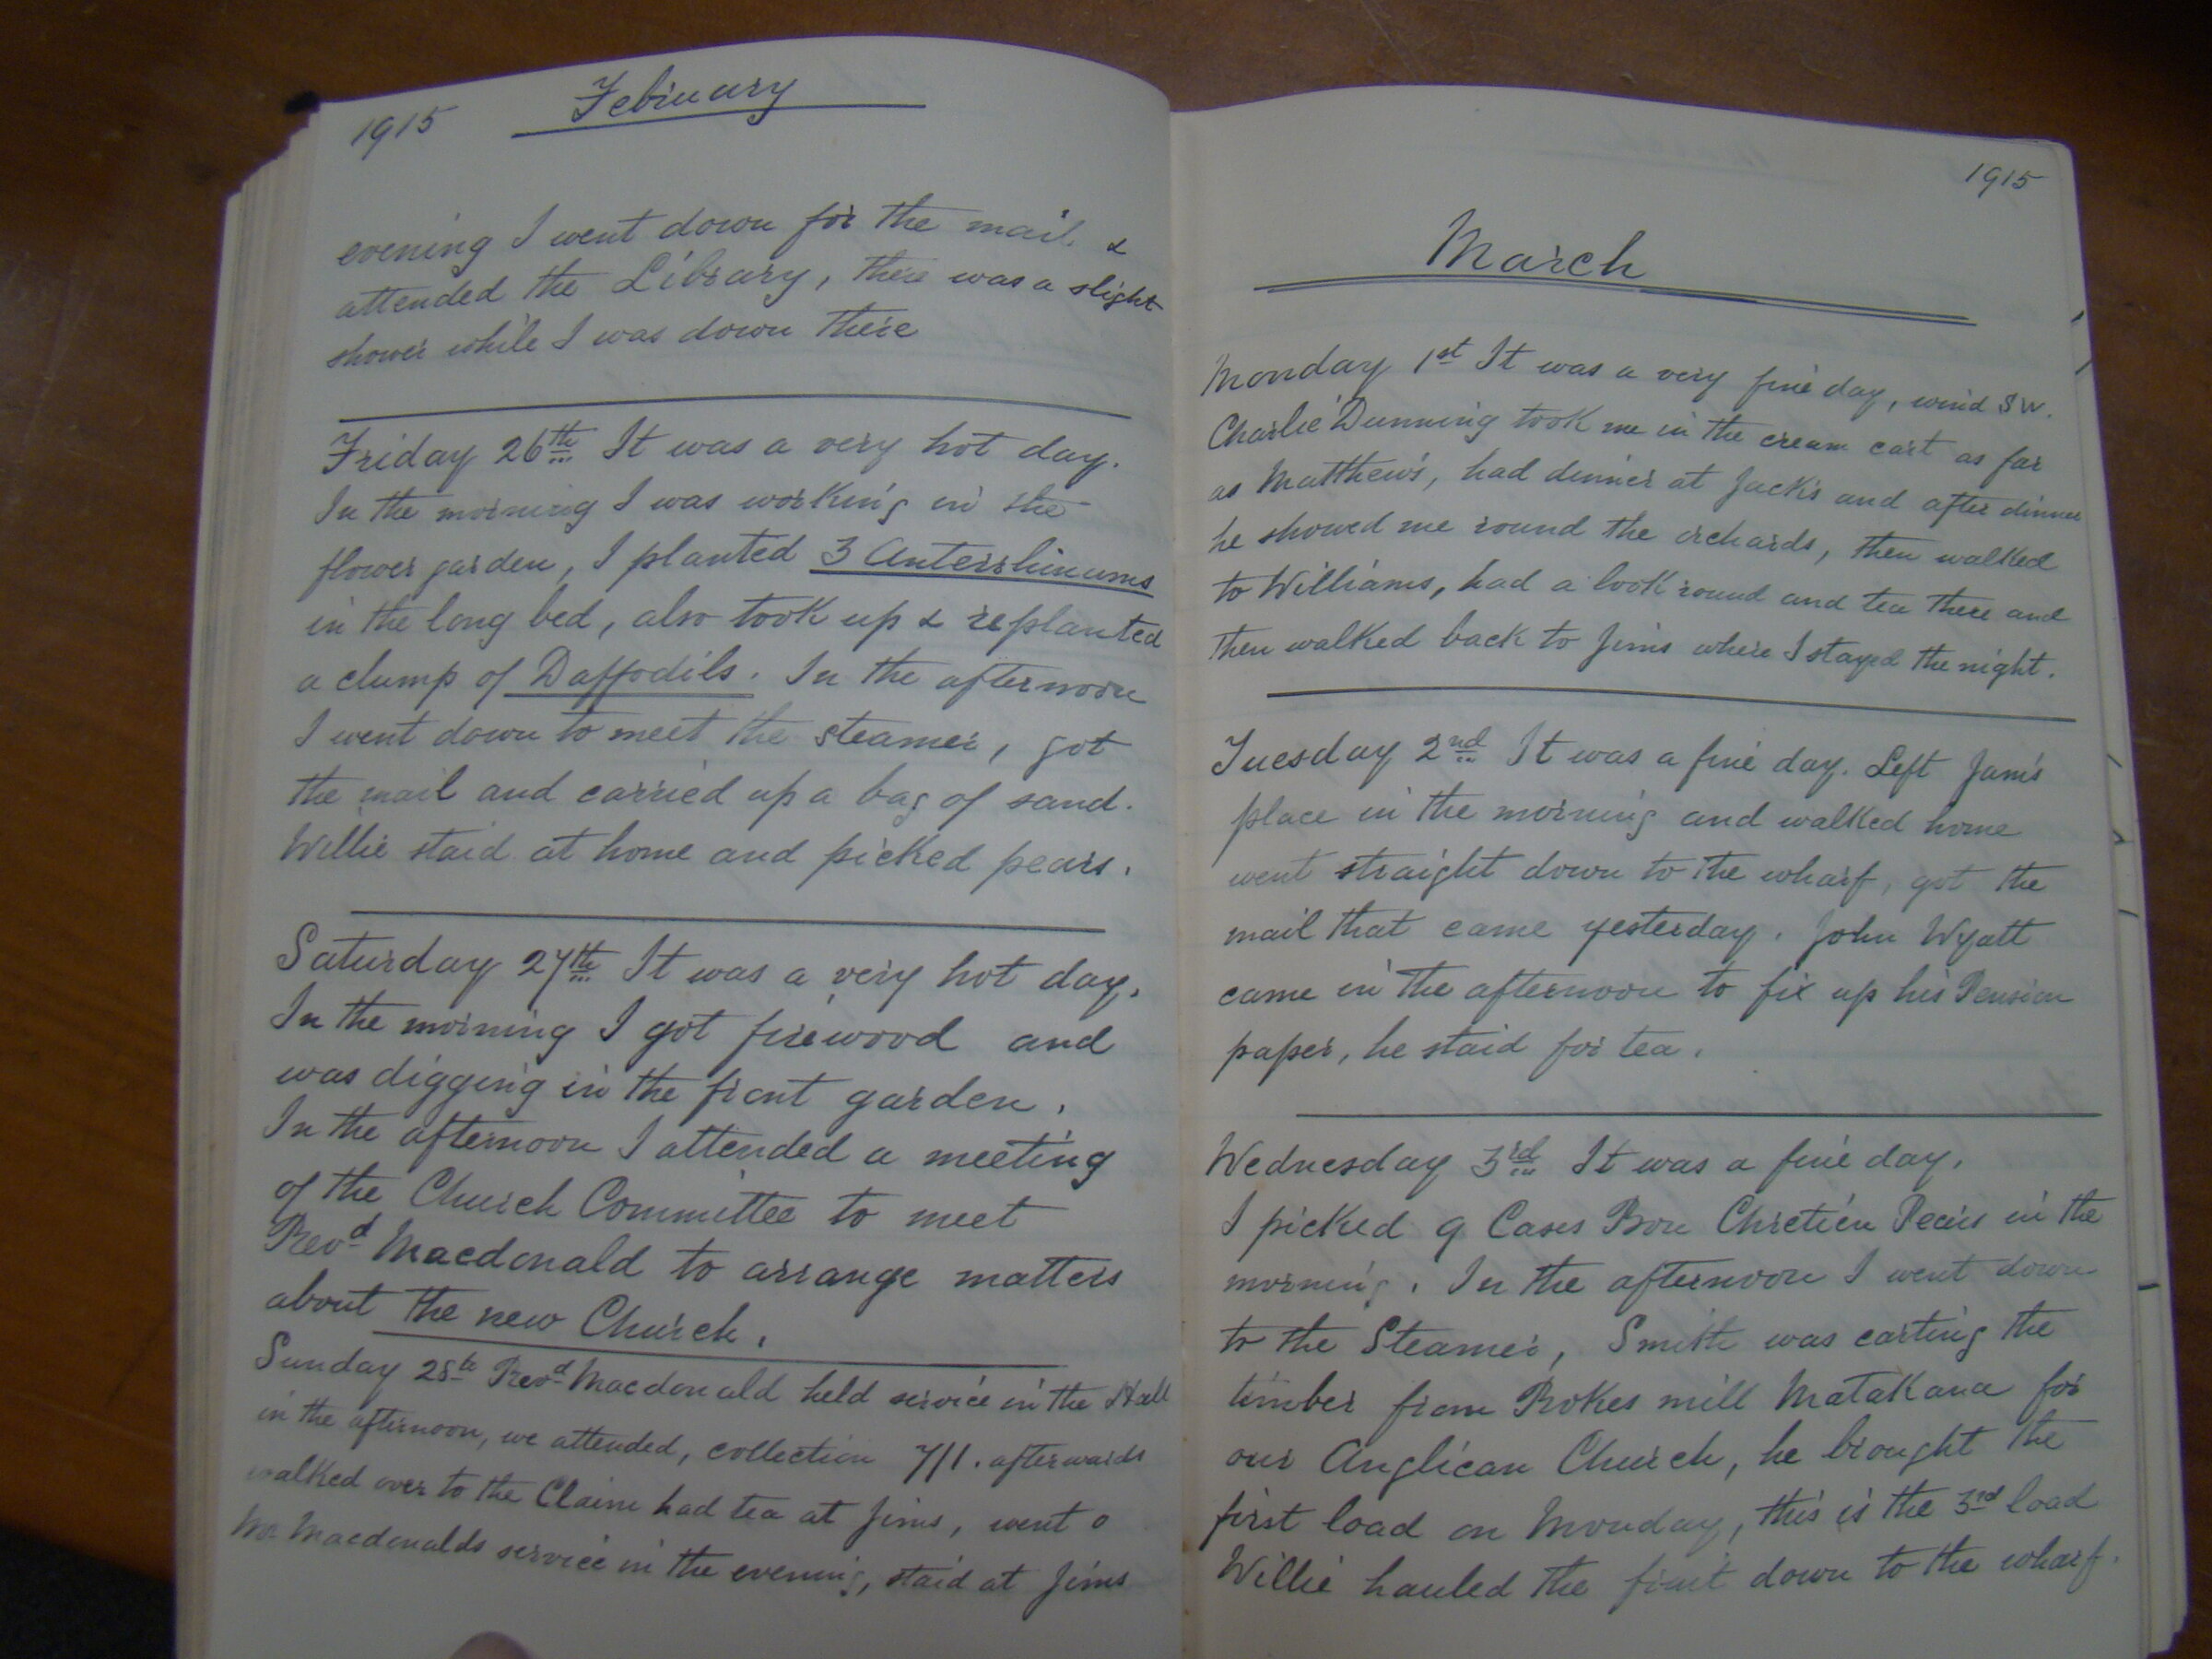 1915 February
evening I went down for the mail &
attended the Library, there was a slight
shower while I was down there
Friday 26th It was a very hot day.
In the morning I was working in the
flower garden, I planted 3 Anterrhinums
in the long bed, also took up & replanted
a clump of Daffodils. In the afternoon
I went down to meet the steamer, got
the mail and carried up a bag of sand.
Willie staid at home and picked pears.
Saturday 27th It was a very hot day.
In the morning I got firewood and
was digging in the front garden.
In the afternoon I attended a meeting
of the Church Committee to meet
Revd Macdonald to arrange matters
about the new Church.
Sunday 28th Revd Macdonald held service in the Hall
in the afternoon, we attended, collection 7/1. afterwards
walked over to the Claim had tea at Jims, went
Mr Macdonalds service in the evening, staid at Jims
1915
March
Monday 1st It was a very fine day, wind SW.
Charlie Dunning took me in the cream cart as far
as Matthews, had dinner at Jacks and after dinner
he showed me round the orchards, then walked
to Williams, had a look round and tea there and
then walked back to Jims where I stayed the night.
Tuesday 2nd It was a fine day. Left Jams
place in the morning and walked home
went straight down to the wharf, got the
mail that came yesterday. John Wyatt
came in the afternoon to fix up his Pension
paper, he staid for tea.
Wednesday 3rd It was a fine day.
I picked 9 Cases Bon Chretien Pears in the
morning. In the afternoon I went down
to the Steamer, Smith was carting the
timber from Rokes mill Matakana for
our Anglican Church, he brought the
first load on Monday, this is the 3rd load
Willie hauled the fruit down to the wharf.